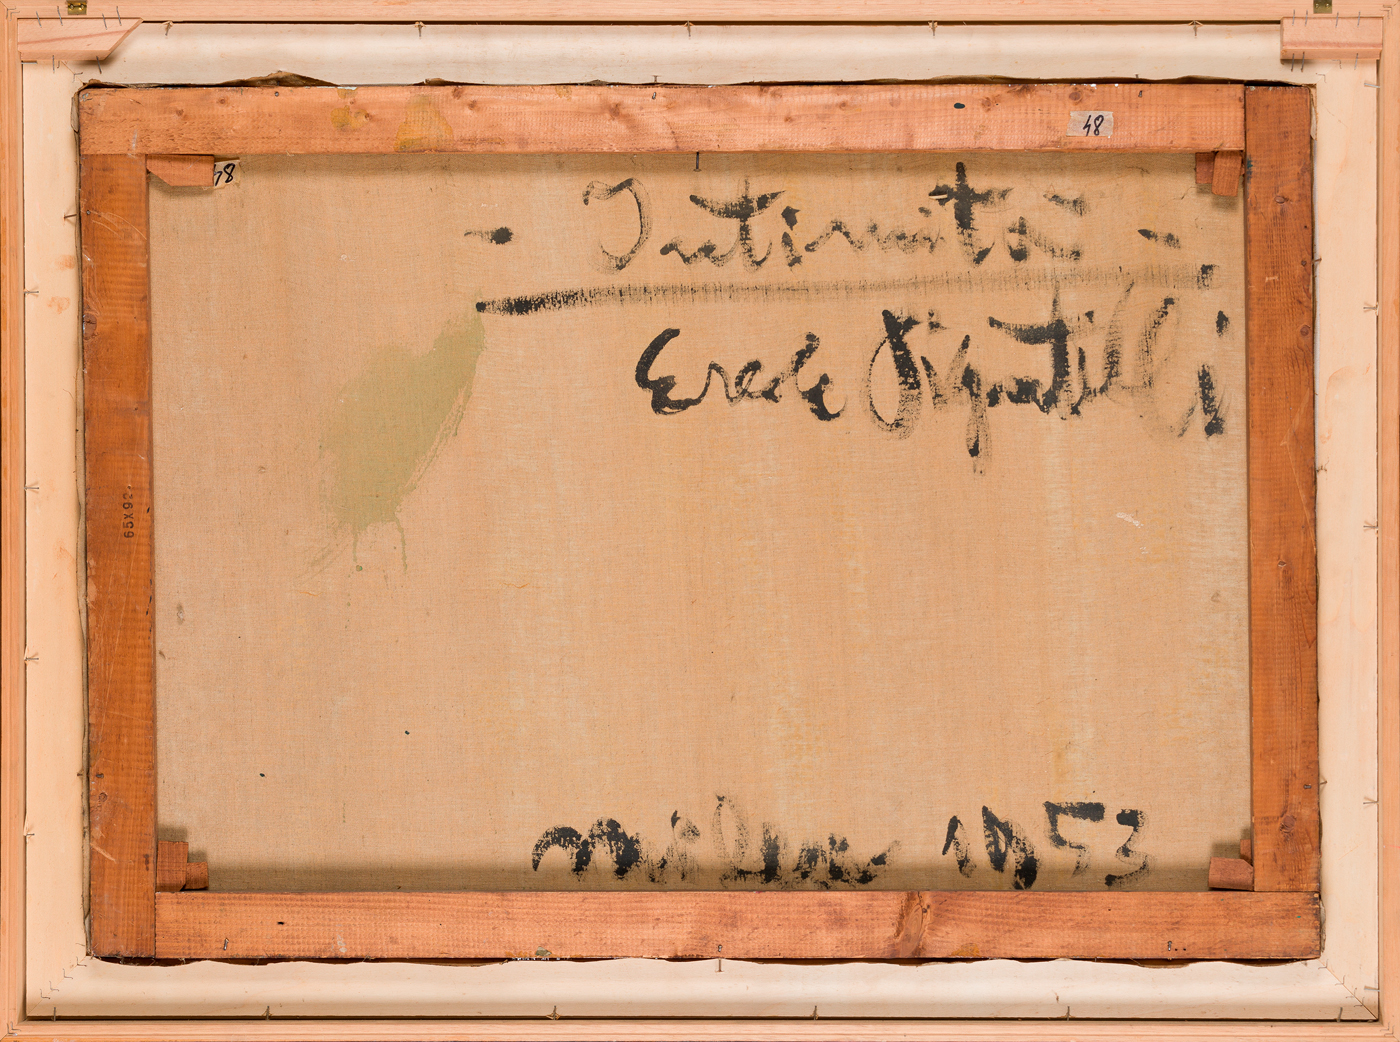 48
48
- Intimità -
Erede Pignatelli
65x92
Milano 1953